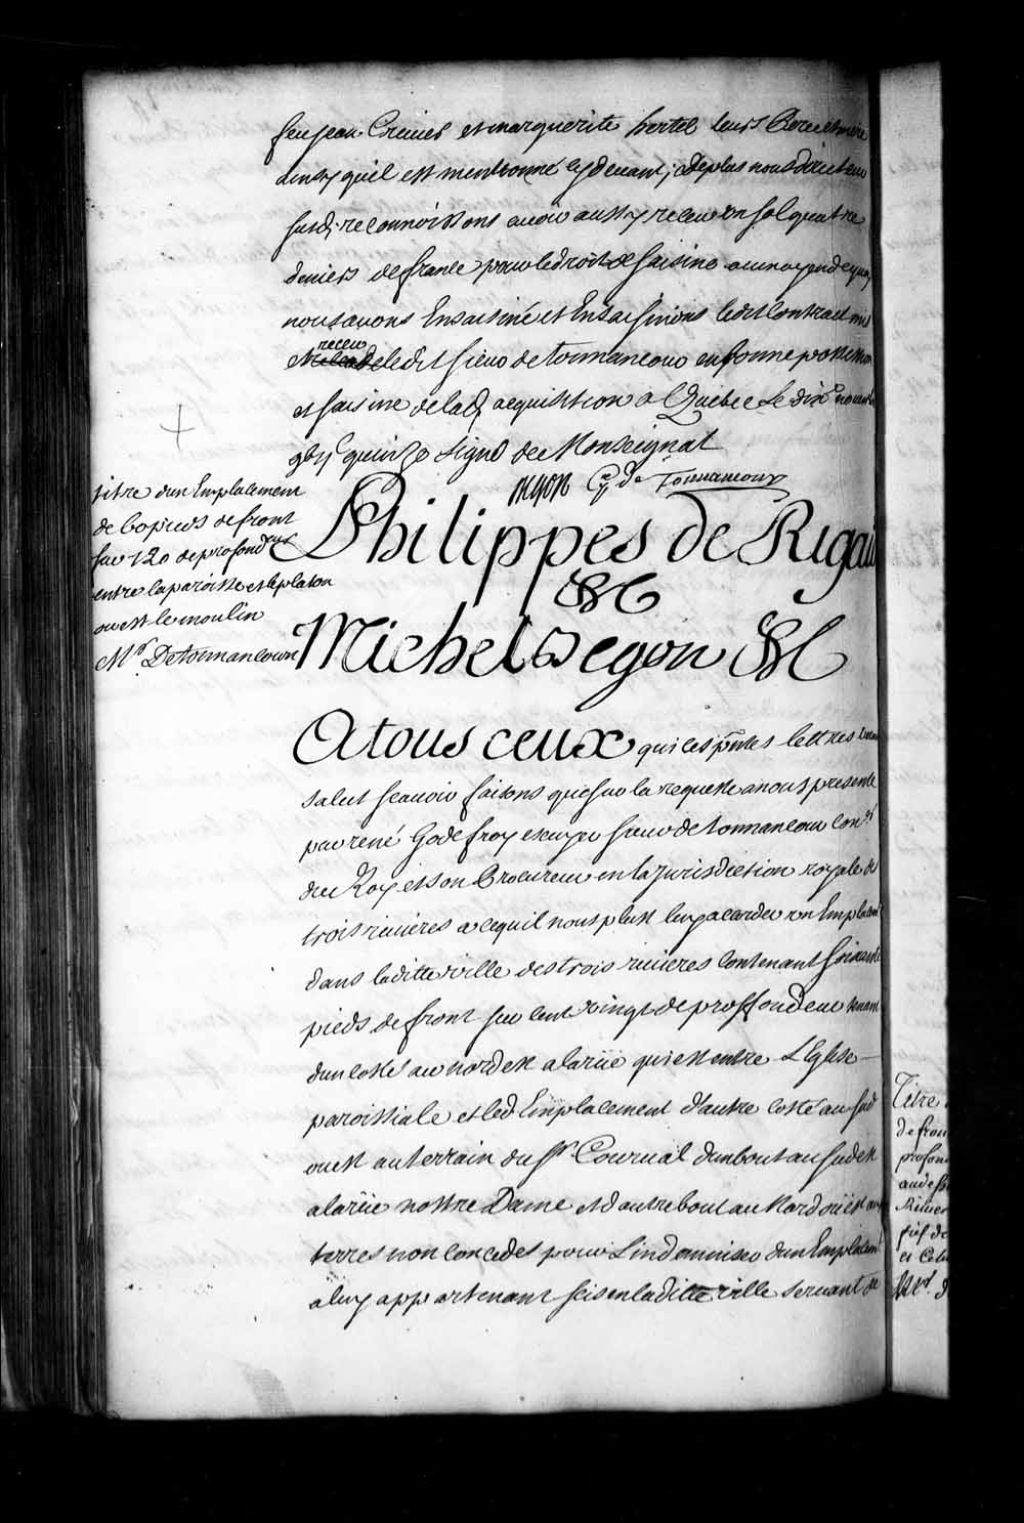 feu jean Crevier et marguerite hertel leurs Pere et mere
ainsy quil est mentionné cy devant; de plus nous directeur
susd; reconnoissons avoir aussy receu un sol quatre
deniers de france pour le droit de saisine au moyen de quoy
nous avons Ensaisiné et Ensaisinons ledit Contract
receu
et ledit sieur de tonnancour en bonne possession
et saisine de lad acquisition a Quebec le dix
9bre quinze signé de Monseignat
Begon G de Tonnancour
titre dun Emplacement
de 60 pieds de front
sur 120 de profondeur
entre la paroisse et le platon
ou est le moulin
Mr Detonnancour
Philippes de Rigau
&c
Michel Begon &c
A tous ceux qui ces pntes lettres
salut scavoir faisons que sur la requeste a nous presentée
par rené Godefroy escuyer sieur de tonnancour Con
du Roy et son Procureur en la jurisdiction royale des
trois rivieres a ce quil nous plust luy accorder un Emplacemt
dans laditte ville des trois rivieres contenant soixante
pieds de front sur cent vingt de proffondeur tenant
dun costé au nordest a la rüe qui est entre LEglise
paroissiale et led Emplacement d'autre costé au sud
ouest au terrain du Sr Courval dun bout au sudest
a la rüe nostre Dame et d'autre bout au Nord oüest aux
terres non concedés pour Lindemniser dun Emplacemt
a luy appartenant scis en laditte ville servant de
Titre
de fron
profon
au dess
Riviere
fief de
et Celu